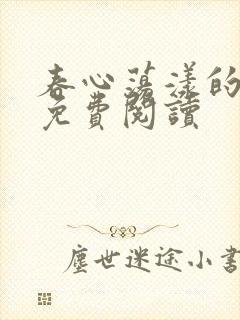 春心蕩漾的
免費閱讀
塵世迷途小書